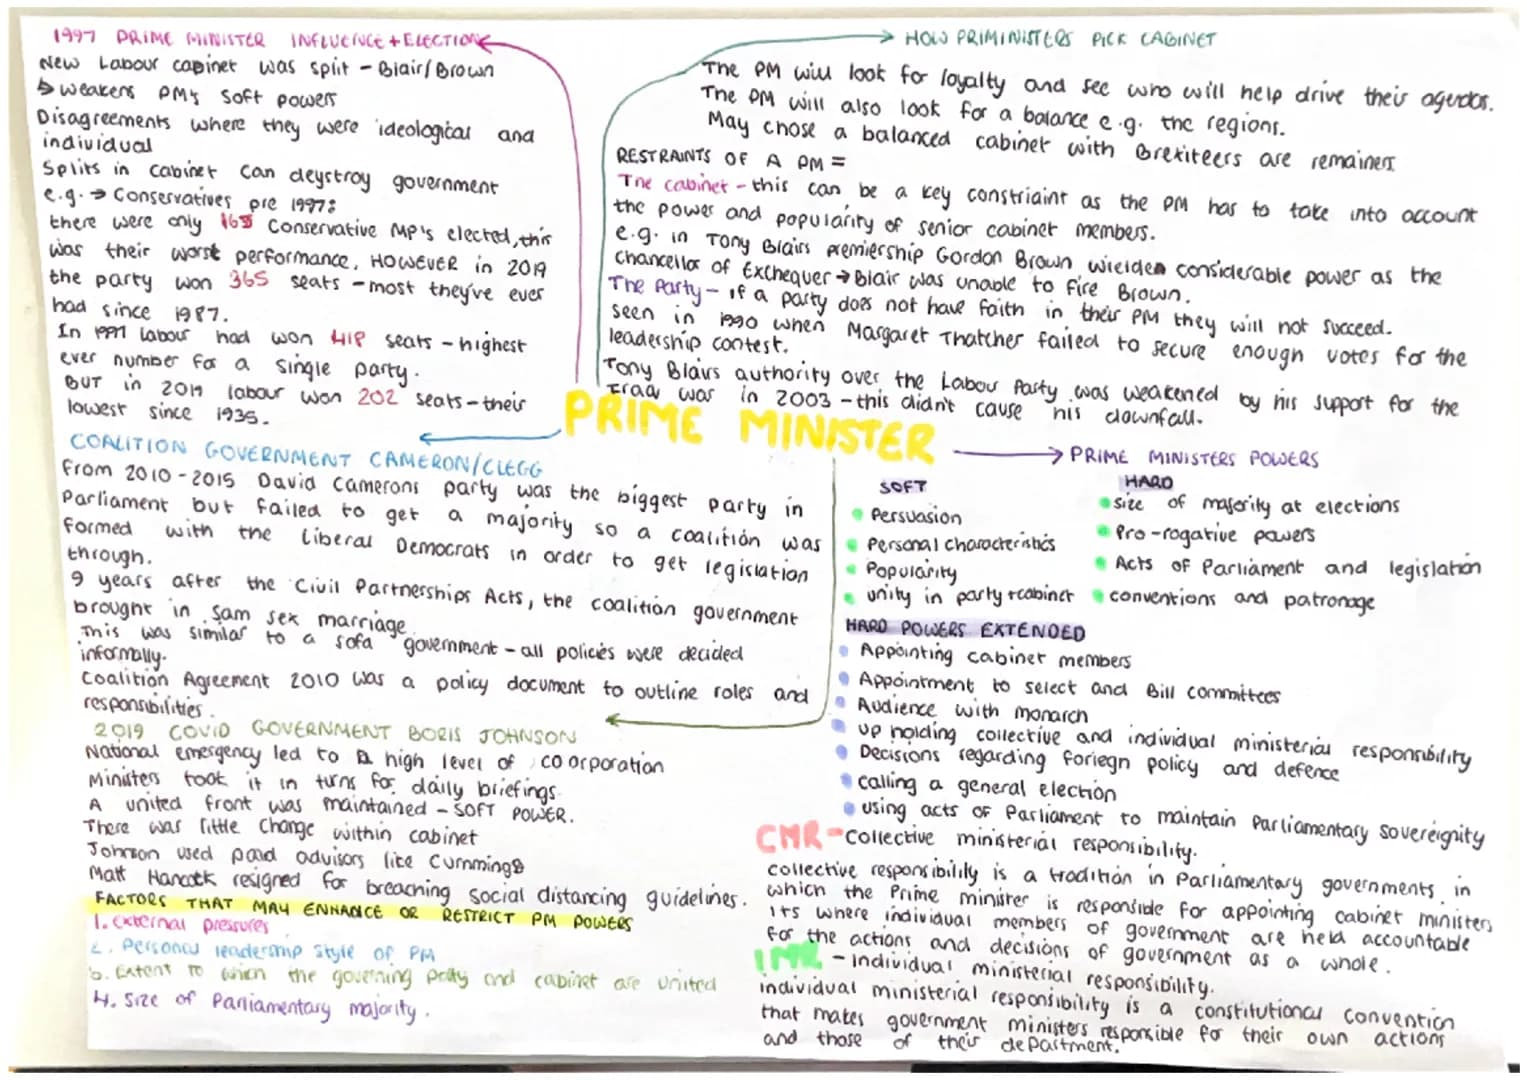 1997 PRIME MINISTER INFLUENCE + ELECTION
New Labour cabinet was split - Blair/Brown
↳ weakens PM's soft powers
Disagreements where they were ideological and
individual
Splits in cabinet can deystroy government
e.g. → Conservatives pre 1997:
there were only 165 Conservative MP's elected, this
was their worst performance. HOWEVER in 2019
the party won 365 seats - most they've ever
had since 1987.
In 1997 labour had won 418 seats - highest
ever number for a single party.
BUT in 2019 labour won 202 seats - their
lowest since 1935.
HOW PRIMINISTERS PICK CABINET
The PM will look for loyalty and see who will help drive their agendas.
The PM will also look for a balance e.g. the regions.
May chose a balanced cabinet with Brexiteers are remainers
RESTRAINTS OF A PM =
The cabinet - this can be a key constriaint as the PM has to take into account
the power and popularity of senior cabinet members.
e.g. in Tony Blairs premiership Gordon Brown wielded considerable power as the
chancellor of Exchequer → Blair was unable to fire Brown.
The Party - if a party does not have faith in their PM they will not succeed.
seen in 1990 when Margaret Thatcher failed to secure enough votes for the
leadership contest.
Tony Blairs authority over the Labour Party was weakened by his support for the
Iraq war in 2003 - this didn't cause his downfall.
PRIME MINISTER
COALITION GOVERNMENT CAMERON/CLEGG
From 2010-2015 David Camerons party was the biggest party in
Parliament but failed to get a majority so a coalition was
formed with the Liberal Democrats in order to get legislation
through.
9 years after the Civil Partnerships Acts, the coalition government
brought in sam sex marriage
This was similar to a sofa government - all policies were decided
informally.
Coalition Agreement 2010 was a policy document to outline roles and
responsibilities.
2019 COVID GOVERNMENT BORIS JOHNSON
National emergency led to a high level of coorporation
Ministers took it in turns for daily briefings
A united front was maintained - SOFT POWER.
There was little change within cabinet
Johnson used paid advisors like Cummings
Matt Hancock resigned for breaching social distancing guidelines.
FACTORS THAT MAY ENHANCE OR RESTRICT PM POWERS
1. External pressures
2. Personal leadership style of PM
3. Extent to which the governing party and cabinet are united
4. Size of Parliamentary majority.
PRIME MINISTERS POWERS
SOFT
Persuasion
Personal characteristics
Popularity
unity in party + cabinet
HARD
size of majority at elections
Pro-rogative powers
Acts of Parliament and legislation
conventions and patronage
HARD POWERS EXTENDED
Appointing cabinet members
Appointment to select and Bill committees
Audience with monarch
up holding collective and individual ministerial responsibility
Decisions regarding foriegn policy and defence
calling a general election
using acts of Parliament to maintain Parliamentary sovereignity
CMR - Collective ministerial responsibility.
collective responsibility is a tradition in Parliamentary governments in
which the Prime minister is responsible for appointing cabinet ministers
Its where individual members of government are held accountable
for the actions and decisions of government as a whole.
IMR - individual ministerial responsibility.
individual ministerial responsibility is a constitutional convention
that makes government ministers responsible for their own actions
and those of their department.